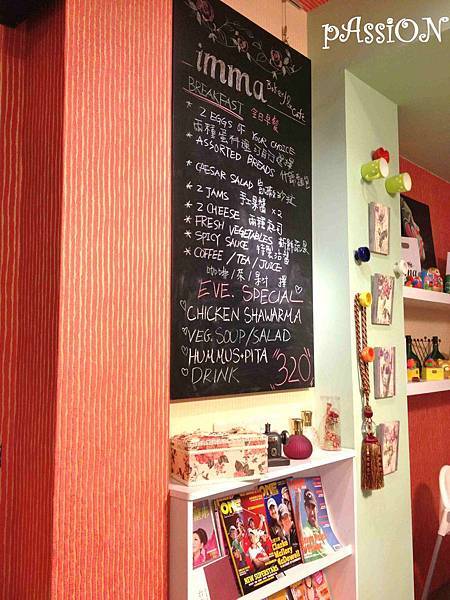 pAssiON
imma
Bakery & Café
BREAKFAST 全日早餐
* 2 EGGS OF YOUR CHOICE
兩種蛋料理可自行選擇
* ASSORTED BREADS 什錦麵包
* CAESAR SALAD 凱薩沙拉
* 2 JAMS 手工果醬 x2
* 2 CHEESE 兩種起司
* FRESH VEGETABLES 新鮮蔬果
* SPICY SAUCE 特製沾醬
* COFFEE / TEA / JUICE
咖啡/茶/果汁 擇
EVE. SPECIAL
CHICKEN SHAWARMA
VEG. SOUP/SALAD
HUMMUS+PITA
DRINK "320"
ONE
NEW SUPERSTARS
Clarke
McIlroy
McDowell